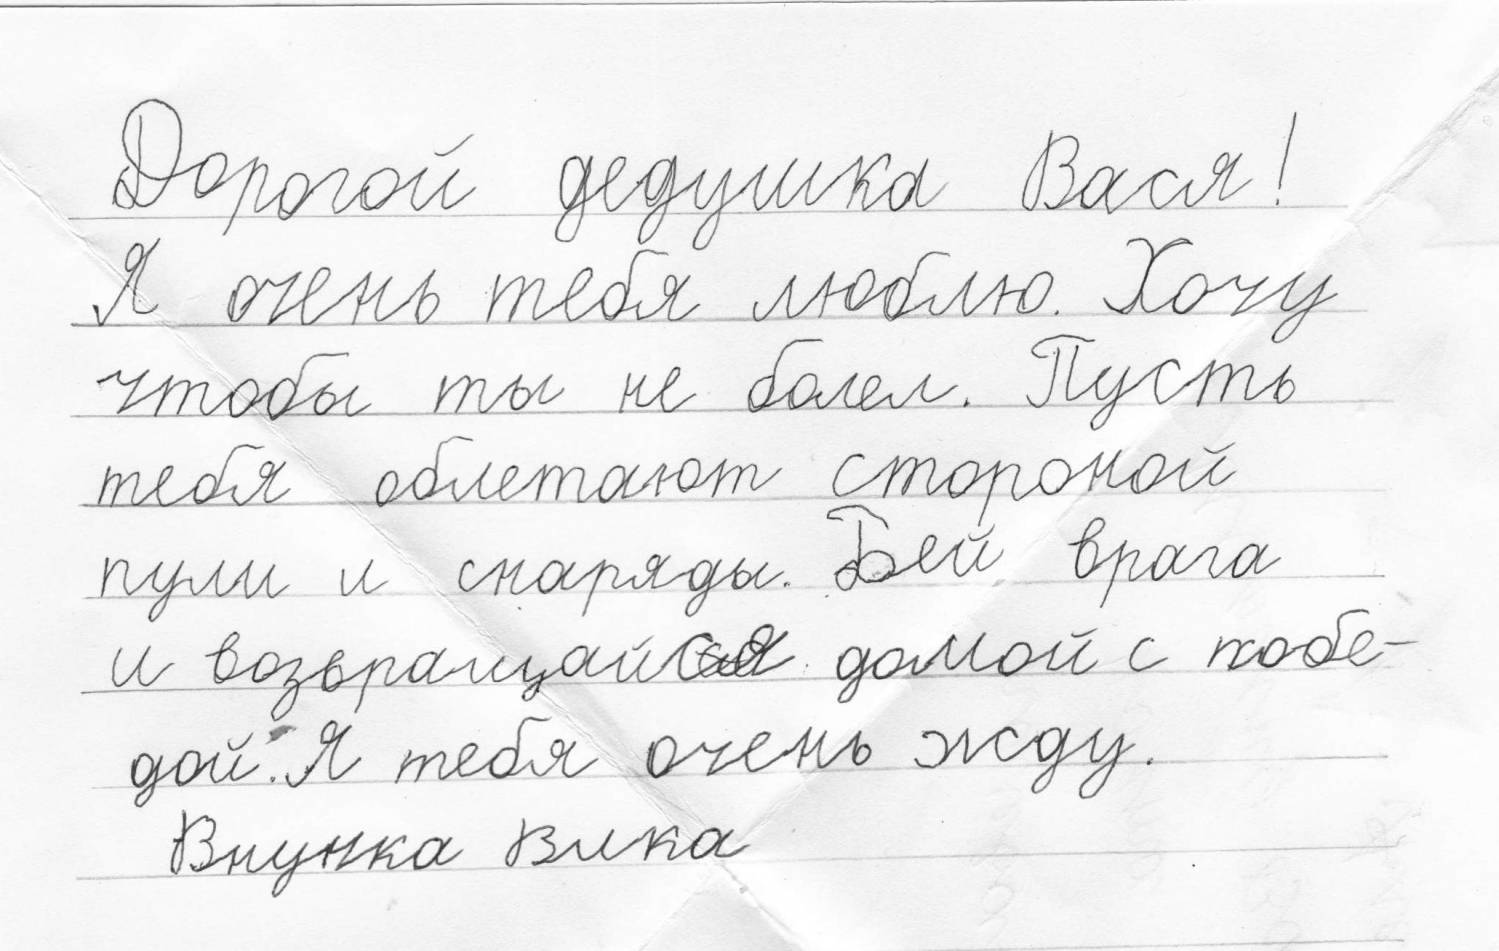 Дорогой дедушка Вася!
Я очень тебя люблю. Хочу
чтобы ты не болел. Пусть
тебя облетают стороной
пули и снаряды. Бей врага
и возвращайся домой с побе-
дой. Я тебя очень жду.
Внучка Вика